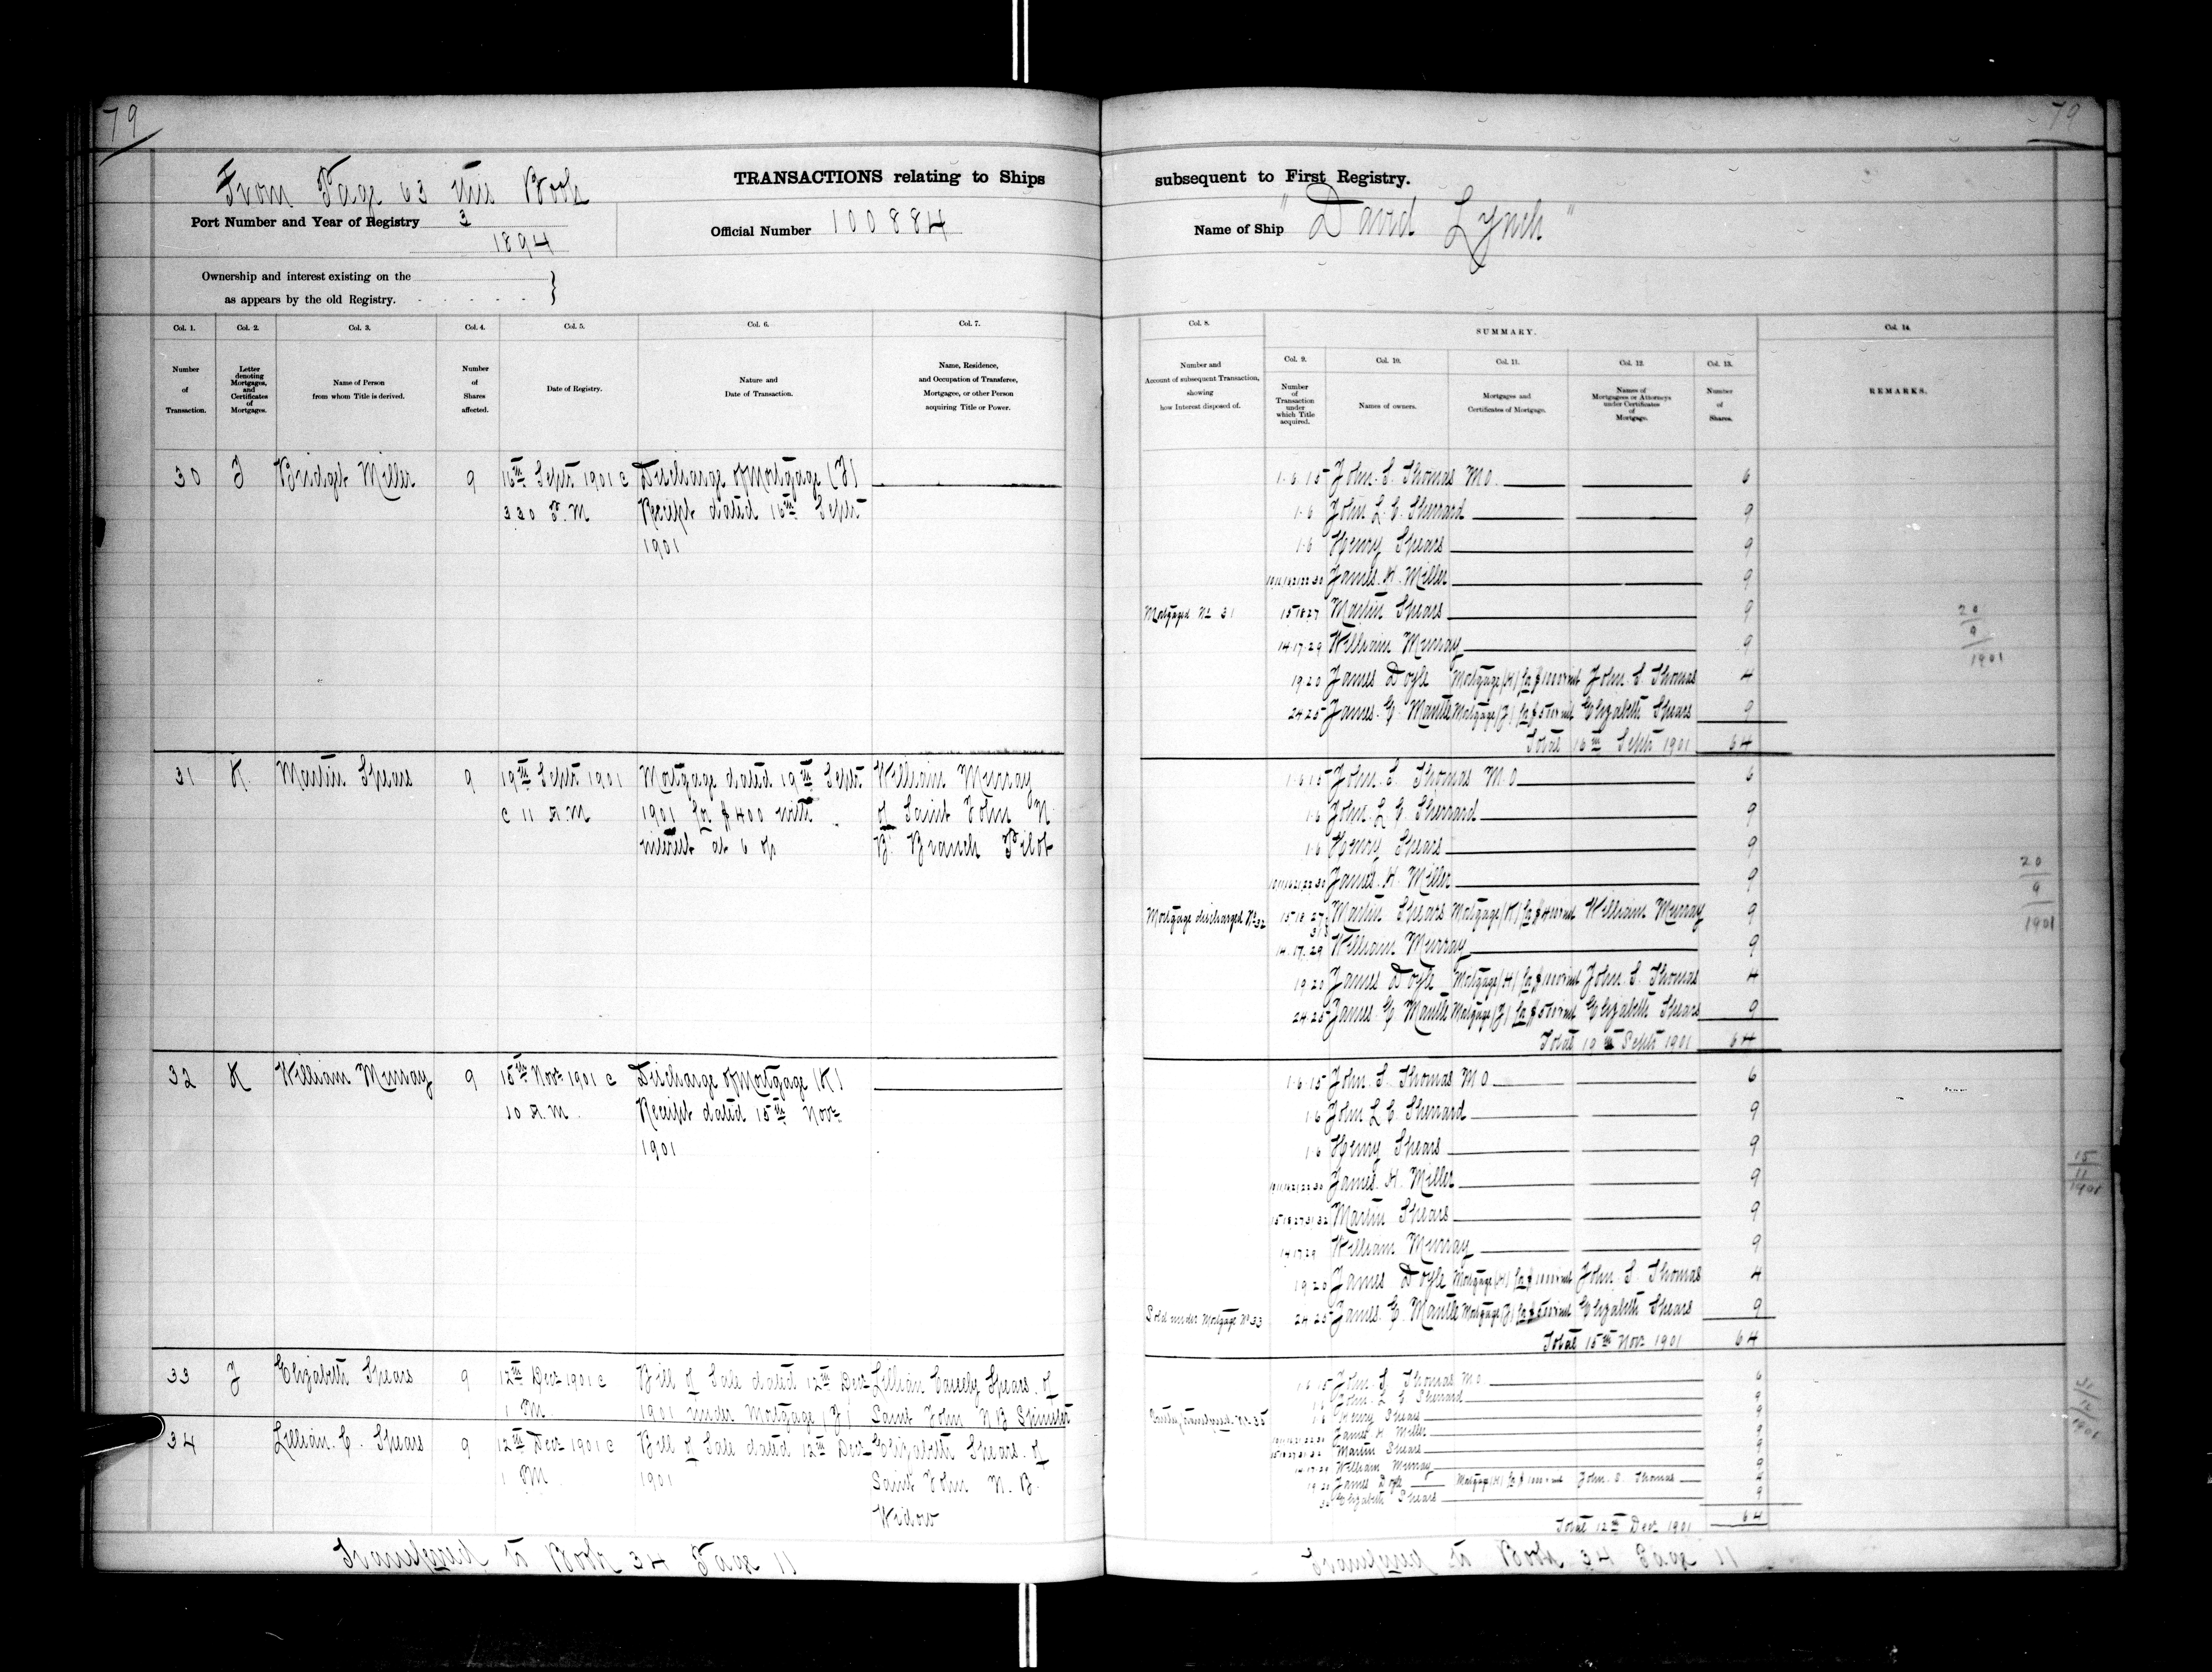 79
From Page 63 this Book
TRANSACTIONS relating to Ships
Port Number and Year of Registry 3
1894
Official Number 100884
Ownership and interest existing on the
as appears by the old Registry.
Col. 1.
Col. 2.
Col. 3.
Col. 4.
Col. 5.
Col. 6.
Col. 7.
Number of Transaction.
Letter denoting Mortgages, and Certificates of Mortgages.
Name of Person from whom Title is derived.
Number of Shares affected.
Date of Registry.
Nature and Date of Transaction.
Name, Residence, and Occupation of Transferee, Mortgagee, or other Person acquiring Title or Power.
30 J Bridget Miller 9 16th Septr 1901 @ Discharge of Mortgage (J)
3.30 P.M Receipt dated 16th Septr
1901
31 K. Martin Spears 9 19th Septr 1901 Mortgage dated 19th Septr William Murray
@ 11 A.M 1901 for $400 with of Saint John N
interest at 6 % B. Branch Pilot
32 K William Murray 9 15th Novr 1901 @ Discharge of Mortgage (K)
10 A.M. Receipt dated 15th Novr
1901
33 J Elizabeth Spears 9 12th Decr 1901 @ Bill of Sale dated 12th Decr Lillian Cassely Spears of
1 PM. 1901 under Mortgage (J) Saint John N B Spinster
34 Lillian C. Spears 9 12th Decr 1901 @ Bill of Sale dated 12th Decr Elizabeth Spears of
1 PM. 1901 Saint John N. B.
Widow
Transferred to Book 34 Page 11
79
subsequent to First Registry.
Name of Ship "David Lynch"
Col. 8.
SUMMARY.
Col. 14.
Col. 9.
Col. 10.
Col. 11.
Col. 12.
Col. 13.
Number and Account of subsequent Transaction, showing how Interest disposed of.
Number of Transaction under which Title acquired.
Names of owners.
Mortgages and Certificates of Mortgage.
Names of Mortgagees or Attorneys under Certificates of Mortgage.
Number of Shares.
REMARKS.
1.6.15 John. S. Thomas M.O. 6
1.6 John L. C. Sherrard 9
1.6 Henry Spears 9
James. H. Miller 9
Mortgaged No 31 15 18 27 Martin Spears 9
20/9/1901
14.17.29 William Murray 9
19.20 James Doyle Mortgage (H) John. S. Thomas 4
24.25 James. E. Mantle Mortgage (J) Elizabeth Spears 9
Total 16th Septr 1901 64
1.6.15 John. S. Thomas M.O 6
1.6 John. L. C. Sherrard 9
1.6 Henry Spears 9
20/9/1901
James. H. Miller 9
Mortgage discharged No 32 15 18 27 31 Martin Spears Mortgage (K) William Murray 9
14.17.29 William Murray 9
19 20 James Doyle Mortgage (H) John. S. Thomas 4
24.25 James. E Mantle Mortgage (J) Elizabeth Spears 9
Total 19th Septr 1901 64
1.6.15 John. S. Thomas M O 6
1.6 John L C. Sherrard 9
1.6 Henry Spears 9
James. H. Miller 9
15/11/1901
15 18 27 31 32 Martin Spears 9
14 17 29 William Murray 9
19 20 James Doyle Mortgage (H) John. S. Thomas 4
Sold under Mortgage No 33 24 25 James. E. Mantle Mortgage (J) Elizabeth Spears 9
Total 15th Novr 1901 64
1 6 15 John S Thomas M O 6
John. L C Sherrard 9
1.6 Henry Spears 9
James H Miller 9
Martin Spears 9
14 17 29 William Murray 9
19 20 James Doyle Mortgage (H) John. S. Thomas 4
Elizabeth Spears 9
Total 12th Decr 1901 64
Transferred to Book 34 Page 11